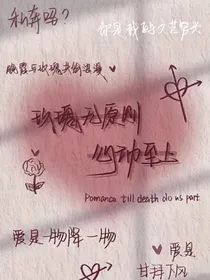 私奔吗?
你是我的文艺复兴
晚霞与玫瑰共倾浪漫
玫瑰无原则
心动至上
Romance till death do us part
爱是一物降一物
爱是
甘拜下风